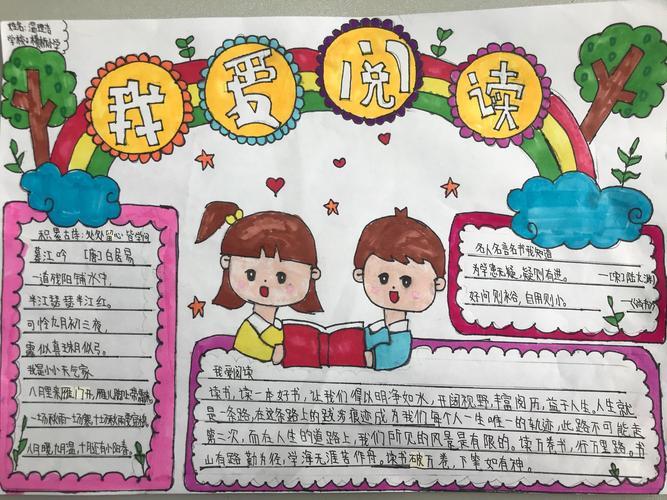 姓名:
学校:
我爱阅读
积累古诗:处处留心皆学问
暮江吟 [唐]白居易
一道残阳铺水中,
半江瑟瑟半江红。
可怜九月初三夜,
露似真珠月似弓。
我是小小天气家
八月里来雁门开,雁儿脚下带霜来。
一场秋雨一场寒,十场秋雨要穿棉。
八月暖,九月温,十月还有小阳春。
名人名言名书我知道
为学患无疑,疑则有进。
——[宋]陆九渊
好问则裕,自用则小。
——《尚书》
我爱阅读
读书,读一本好书,让我们得以明净如水,开阔视野,丰富阅历,益于人生。人生就
是一条路,在这条路上的跋涉痕迹成为我们每个人一生唯一的轨迹,此路不可能走
第二次,而在人生的道路上,我们所见的风景是有限的。读万卷书,行万里路。书
山有路勤为径,学海无涯苦作舟。读书破万卷,下笔如有神。